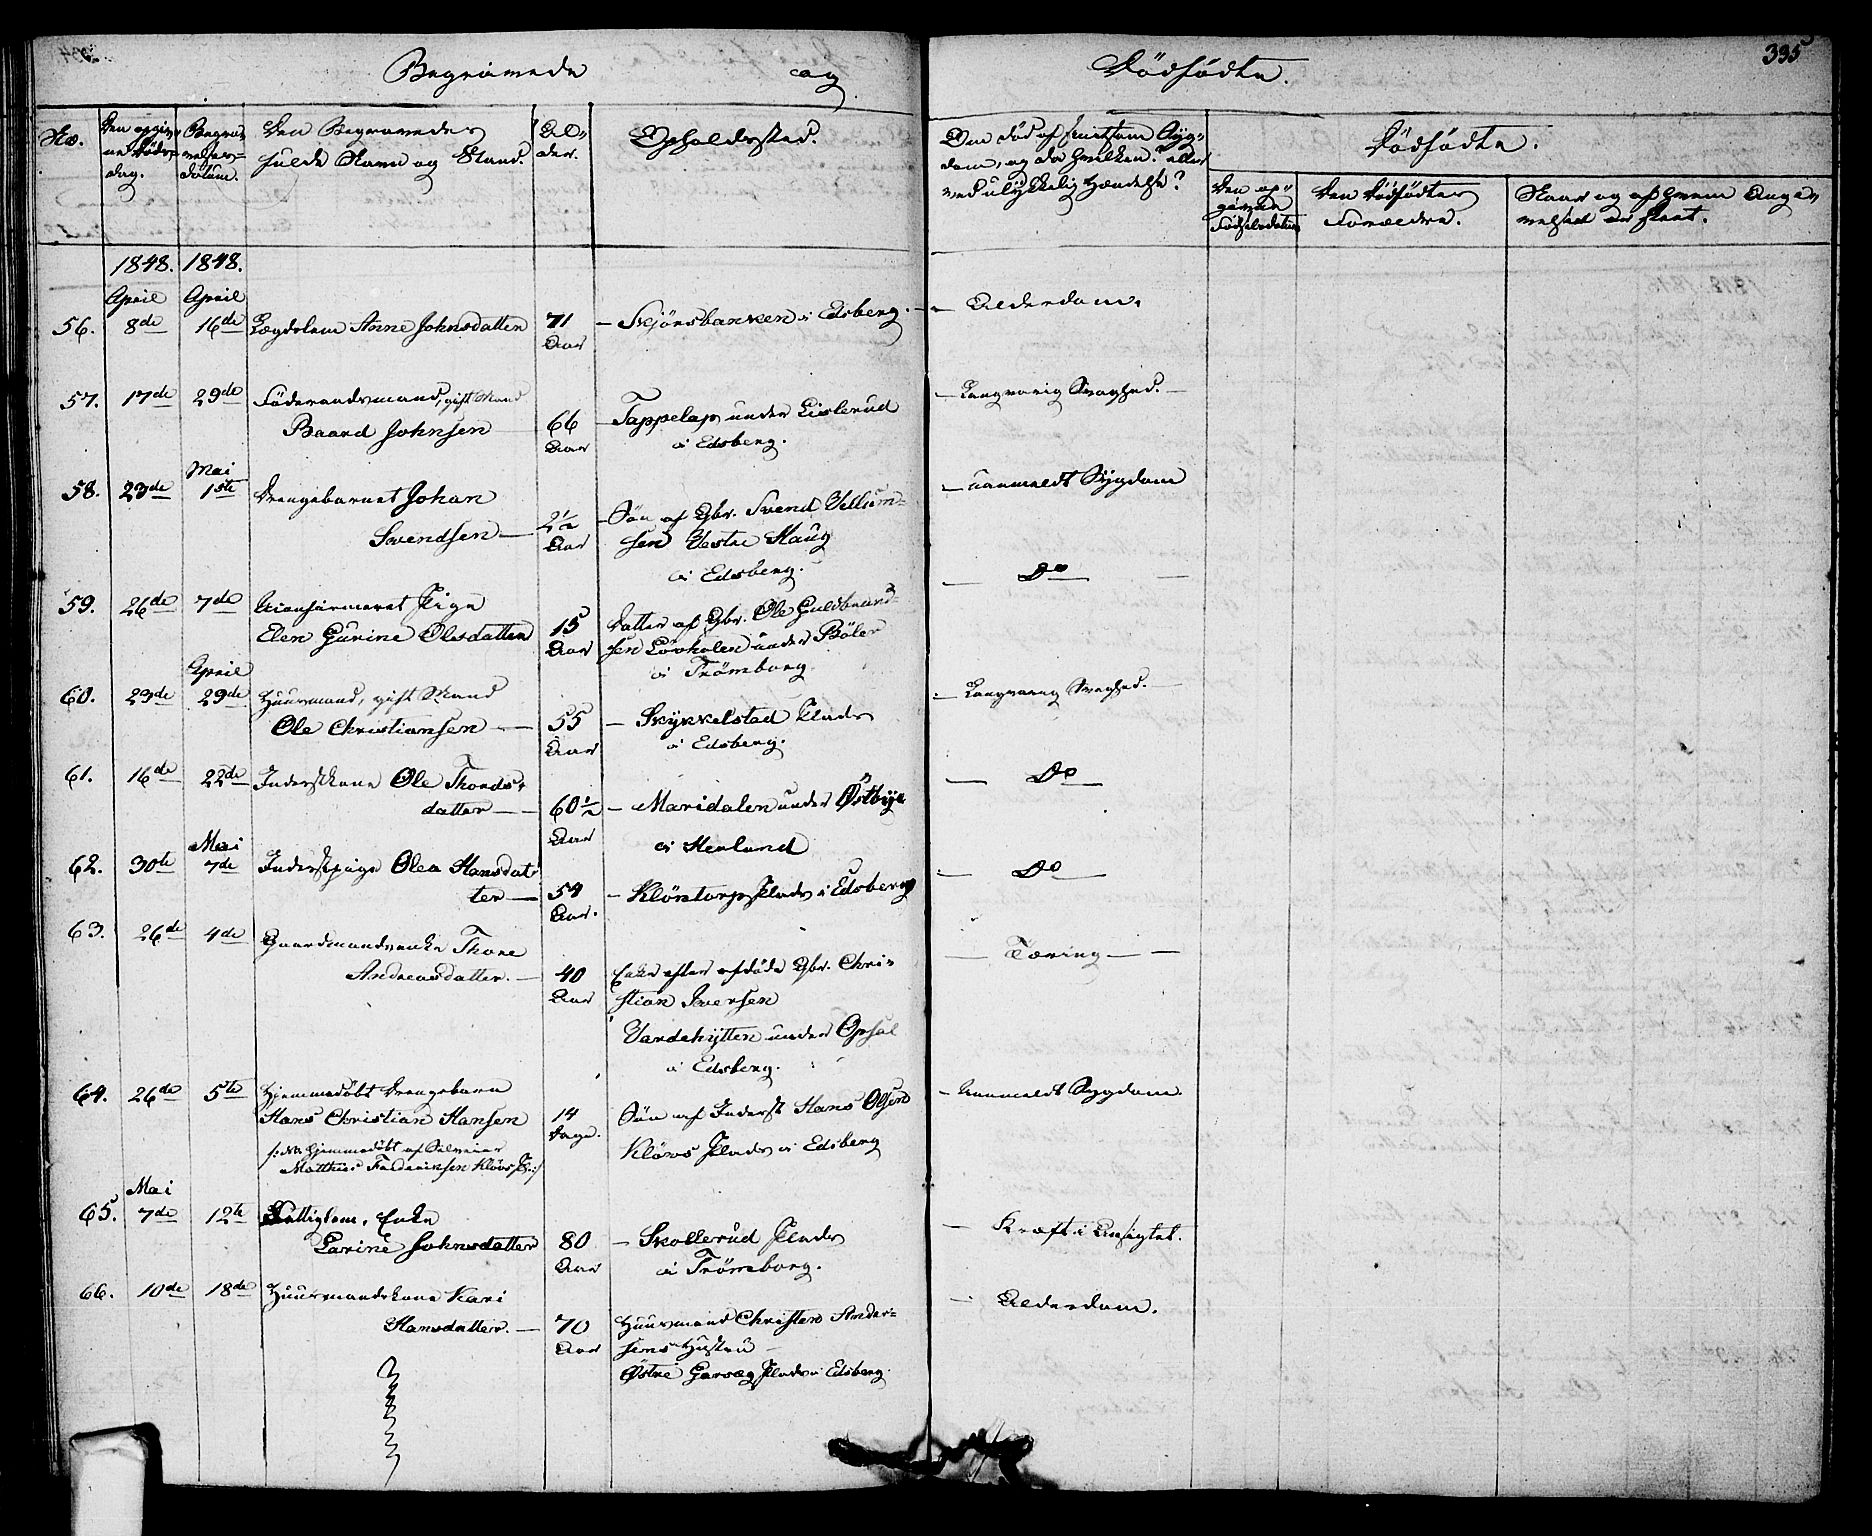 Begravede og Dödfödte.
335
No.
Den opgiv-
ne Döds-
dag.
Begra-
velses-
datum.
Den Begravedes
fulde Navn og Stand.
Al-
der.
Opholdssted.
Om död af smitsom Syg-
dom, og da hvilken? eller
ved ulykkelig Hændelse?
Dödfödte.
Den op-
givne
Födselsdatum
Den Dödfödtes
Forældre.
Naar og af hvem Ange-
velsen er skeet.
1848. 1848.
April April
56. 8de 16de Lægdslem Anne Johnsdatter 71 Aar – Skjörsbanken i Edsberg. – Alderdom.
57. 17de 29de Föderaadsmand, gift Mand
Baard Johnsen 66 Aar – Tappelap under Lislerud
i Edsberg. – Langvarig Svaghed. –
Mai
58. 23de 1ste Drengebarnet Johan
Svendsen – 2½ Aar – Sön af Gbr. Svend Villum-
sen Vestre Haug
i Edsberg. – uanmeldt Sygdom
59. 26de 7de Uconfirmeret Pige
Elen Gurine Olesdatter 15 Aar Datter af Gbr. Ole Guldbrand-
sen Lövholen under Böler
i Trömborg. – Do –
April
60. 23de 29de Huusmand, gift Mand
Ole Christiansen – 55 Aar – Skykkelstad Plads
i Edsberg. – Langvarig Svaghed. –
61. 16de 22de Inderstkone Ole Thords-
datter – 60½ Aar – Maridalen under Östbye
i Herland – Do –
Mai
62. 30te 7de Inderstpige Olea Hansdat-
ter – 54 Aar. – Klöntorp Plads i Edsberg – Do –
63. 26de 4de Gaardmandsenke Thore
Andreasdatter. – 40 Aar Enke efter afdöde Gbr. Chri-
stian Iversen
Vardehytten under Opsal
i Edsberg. – Tæring –
64. 26de 5te Hjemmedöbt Drengebarn
Hans Christian Hansen
/: NB hjemmedöbt af Selveier
Matthies Frederiksen Klövs Pl:/
14 Dage. Sön af Inderst Hans Olsen
Klövs Plads i Edsberg – Uanmeldt Sygdom.
Mai
65. 7de 12te Fattiglem, Enke
Larine Johnsdatter 80 Aar – Skollerud Plads
i Trömborg. – Kræft i Ansigtet.
66. 10de 18de Huusmandskone Kari
Hansdatter. – 70 Aar Huusmand Christen Ander-
sens Hustru –
Østre Garseg Plads i Edsberg. – Alderdom.